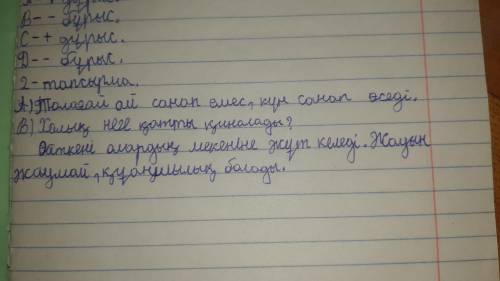 A - + дұрыс.
B - - бұрыс.
C - + дұрыс.
D - - бұрыс.
2 - тапсырма.
A) Толағай ай санап емес, күн санап өседі.
B) Халық неге қатты қиналады?
Өйткені олардың мекеніне жұт келеді. Жауын
жаумай, құаңшылық болады.